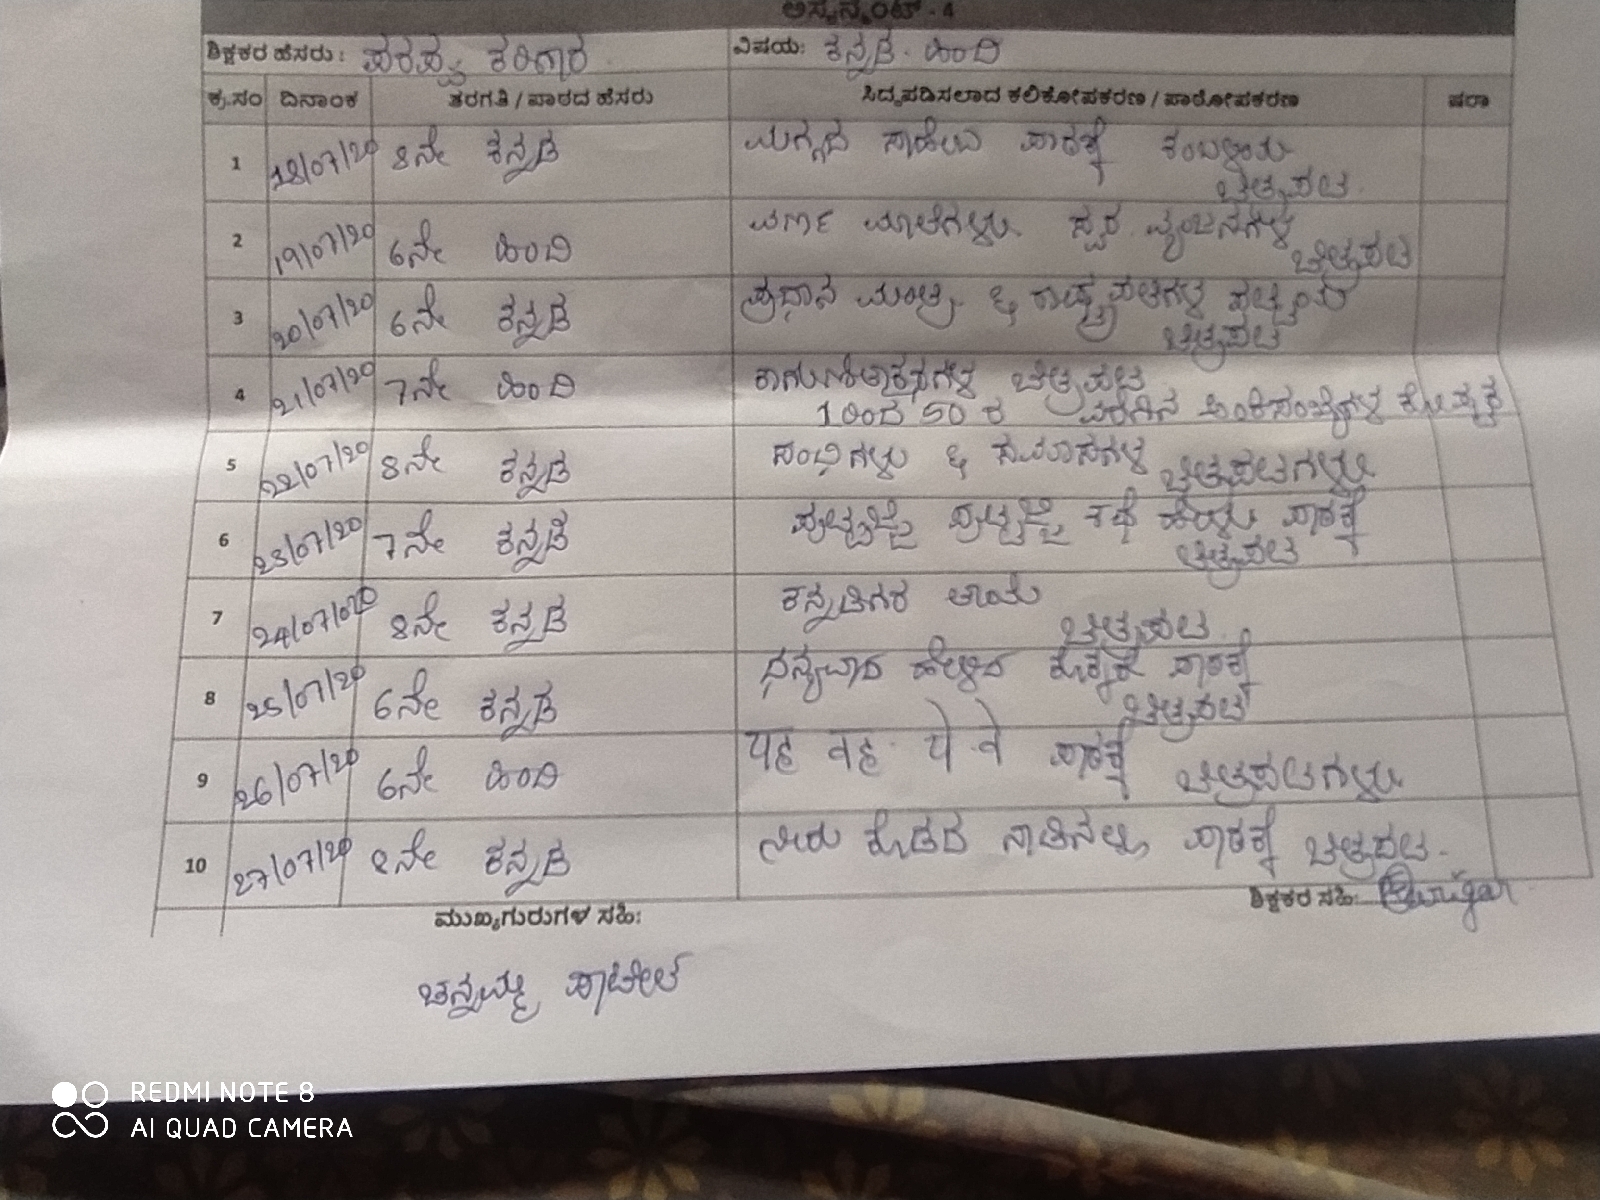 ಅಸೈನ್ಮೆಂಟ್ - 4
ಶಿಕ್ಷಕರ ಹೆಸರು : ವಿಷಯ: ಕನ್ನಡ. ಹಿಂದಿ
ಕ್ರ.ಸಂ ದಿನಾಂಕ ತರಗತಿ / ಪಾಠದ ಹೆಸರು ಸಿದ್ಧಪಡಿಸಲಾದ ಕಲಿಕೋಪಕರಣ / ಪಾಠೋಪಕರಣ ಷರಾ
1 18/07/20 8ನೇ ಕನ್ನಡ ಮಗ್ಗದ ಸಾಹೇಬ ಪಾಠಕ್ಕೆ
ಚಿತ್ರಪಟ.
2 19/07/20 6ನೇ ಹಿಂದಿ ವರ್ಣ ಮಾಲೆಗಳು ಸ್ವರ ವ್ಯಂಜನಗಳ
ಚಿತ್ರಪಟ
3 20/07/20 6ನೇ ಕನ್ನಡ ಪ್ರಧಾನ ಮಂತ್ರಿ & ರಾಷ್ಟ್ರಪತಿಗಳ ಪಟ್ಟಿಯ
ಚಿತ್ರಪಟ
4 21/07/20 7ನೇ ಹಿಂದಿ ಕಾಗುಣಿತಾಕ್ಷರಗಳ ಚಿತ್ರಪಟ
1ರಿಂದ 50 ರ ವರೆಗಿನ ಅಂಕಿಸಂಖ್ಯೆಗಳ ಕೋಷ್ಟಕ
5 22/07/20 8ನೇ ಕನ್ನಡ ಸಂಧಿಗಳು & ಸಮಾಸಗಳ ಚಿತ್ರಪಟಗಳು
6 23/07/20 7ನೇ ಕನ್ನಡ ಪುಟ್ಟಜ್ಜಿ ಪುಟ್ಟಜ್ಜಿ ಕಥೆ ಹೇಳು ಪಾಠಕ್ಕೆ
ಚಿತ್ರಪಟ
7 24/07/020 8ನೇ ಕನ್ನಡ ಕನ್ನಡಿಗರ ತಾಯಿ
ಚಿತ್ರಪಟ.
8 25/07/20 6ನೇ ಕನ್ನಡ ಧನ್ಯವಾದ ಹೇಳಿದ ಕೊಕ್ಕರೆ ಪಾಠಕ್ಕೆ
ಚಿತ್ರಪಟ
9 26/07/20 6ನೇ ಹಿಂದಿ यह वह ये वे ಪಾಠಕ್ಕೆ ಚಿತ್ರಪಟಗಳು
10 27/07/20 8ನೇ ಕನ್ನಡ ನೀರು ಕೊಡದ ನಾಡಿನಲ್ಲಿ ಪಾಠಕ್ಕೆ ಚಿತ್ರಪಟ.
ಮುಖ್ಯಗುರುಗಳ ಸಹಿ: ಶಿಕ್ಷಕರ ಸಹಿ:
ಚನ್ನಮ್ಮ ಪಾಟೀಲ
REDMI NOTE 8
AI QUAD CAMERA